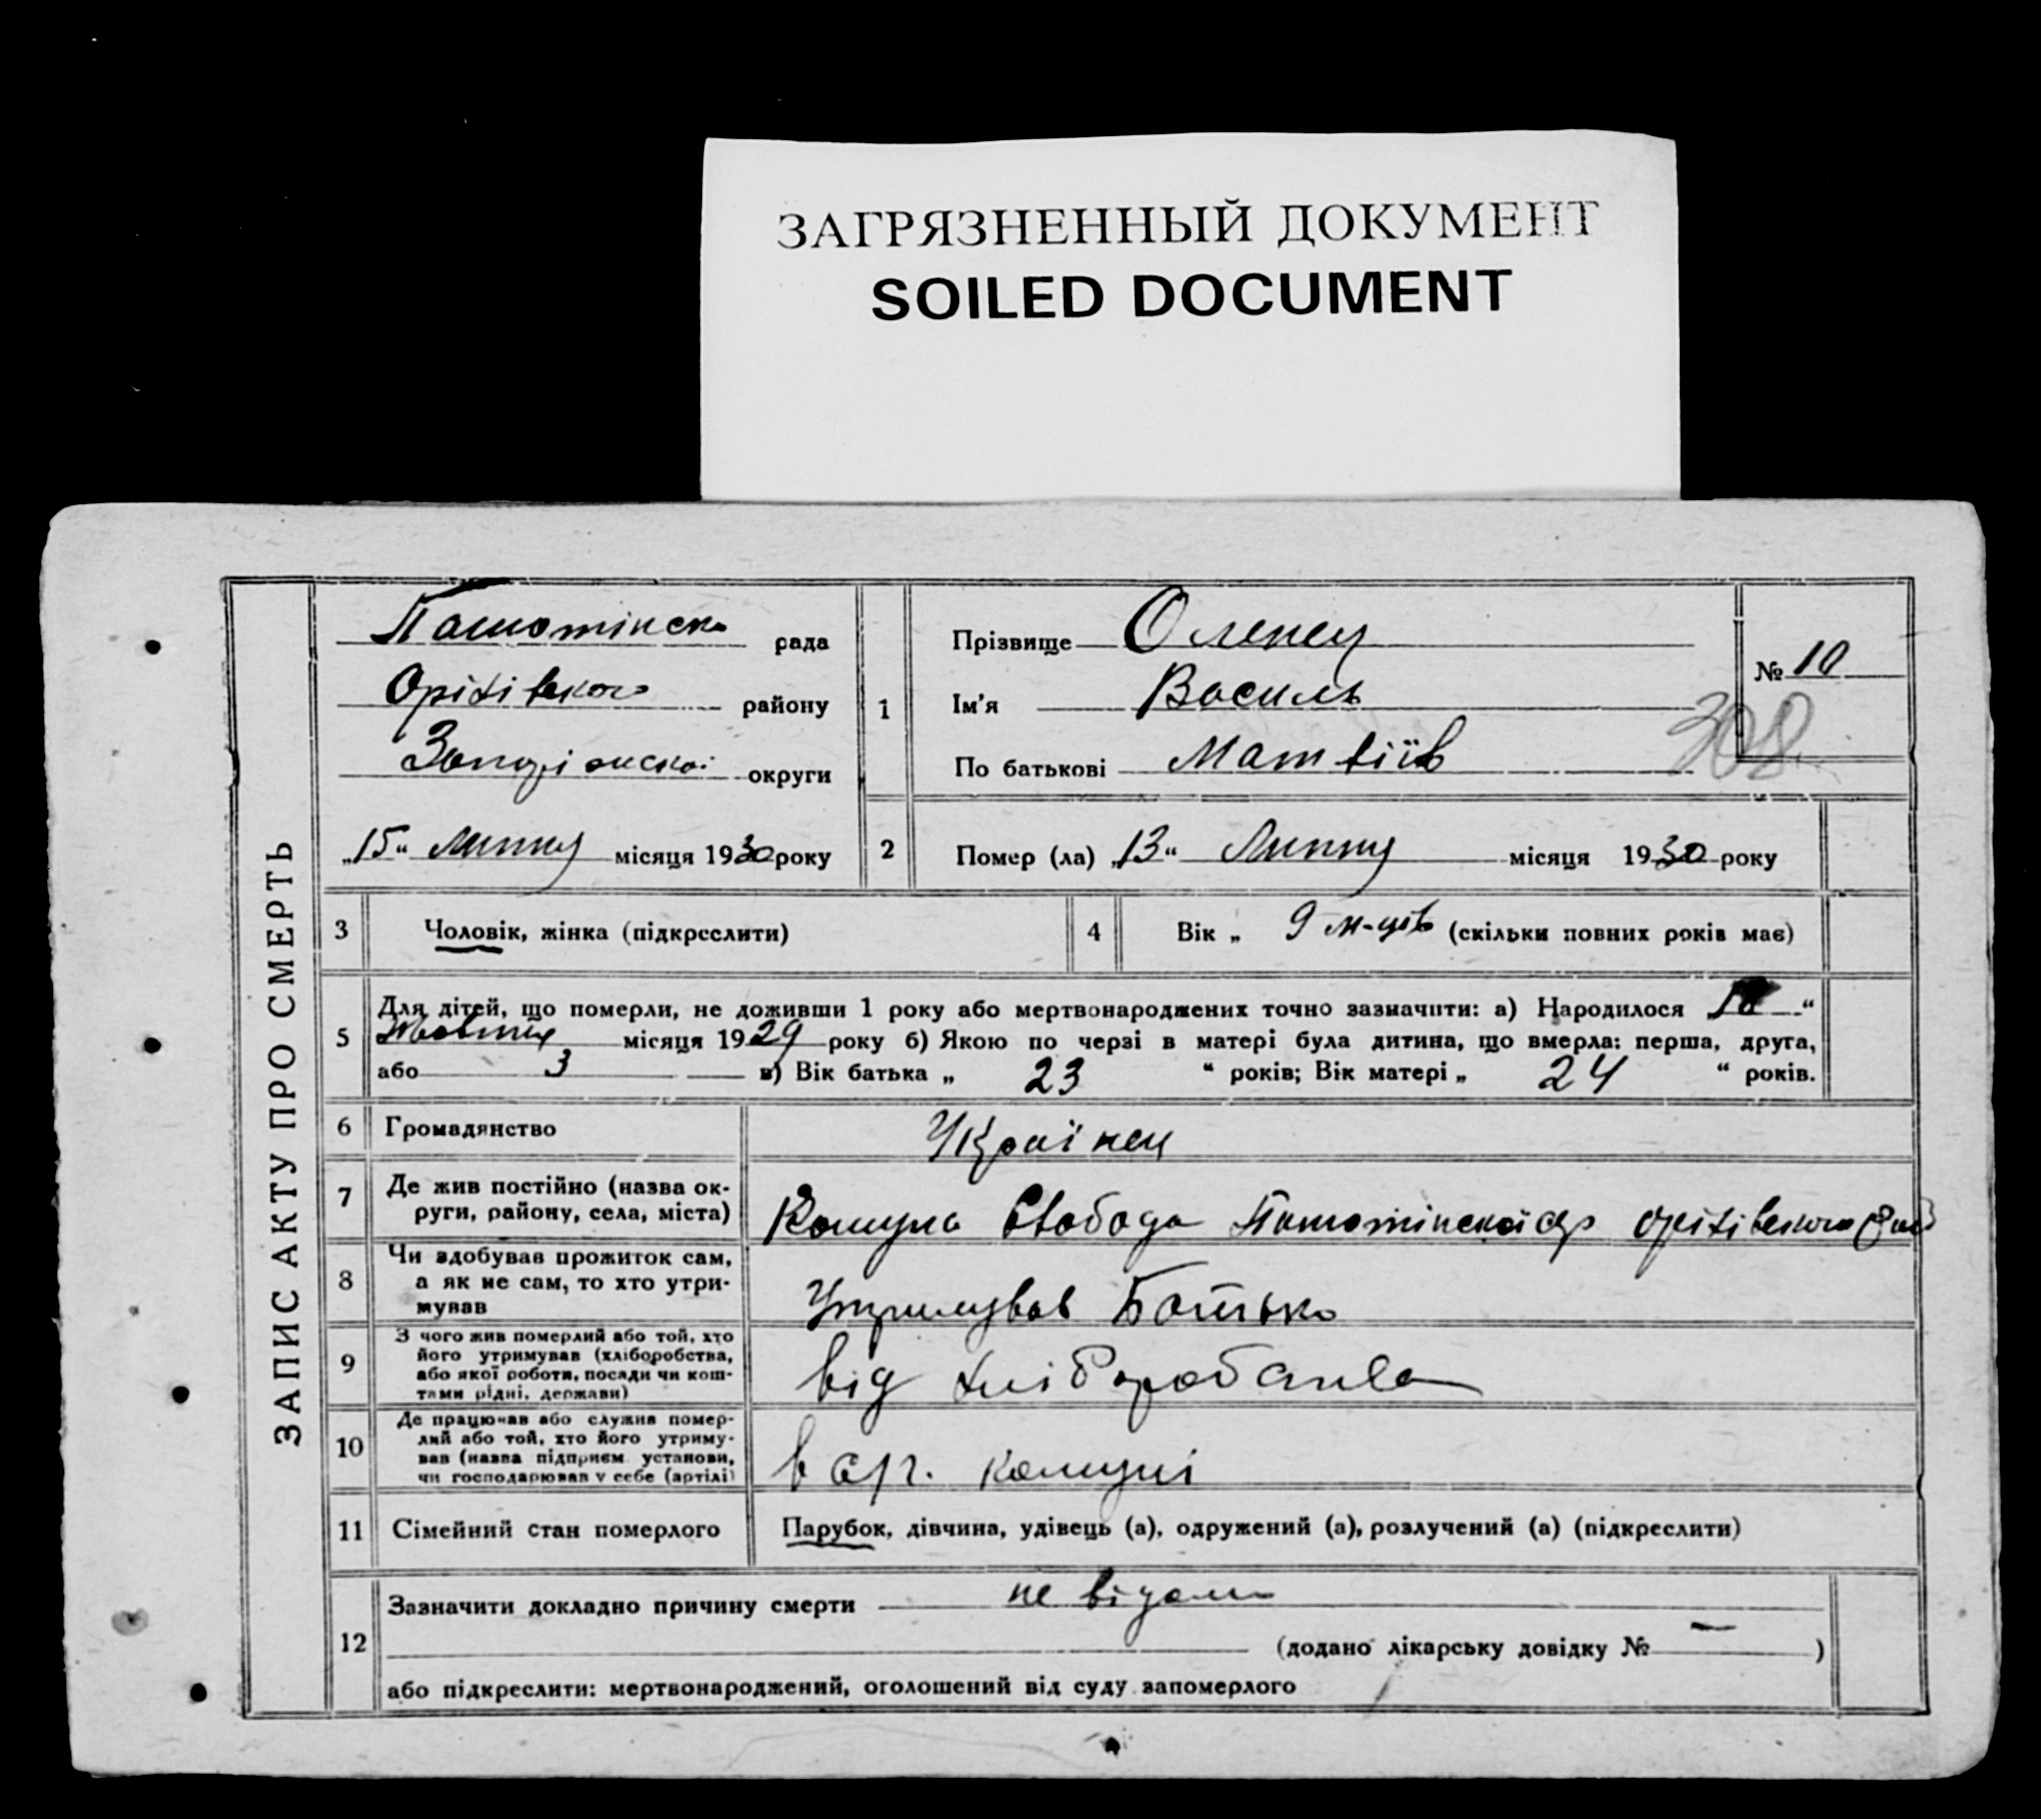 ЗАГРЯЗНЕННЫЙ ДОКУМЕНТ
SOILED DOCUMENT
ЗАПИС АКТУ ПРО СМЕРТЬ
рада
Оріхівського району
округи
„15“ Липня місяця 1930 року
1
Прізвище Оленец
Ім'я Василь
По батькові Матвіїв
№ 10
308
2 Помер (ла) „13“ Липня місяця 1930 року
3 Чоловік, жінка (підкреслити)
4 Вік „ 9 м-ців (скільки повних років має)
5 Для дітей, що померли, не доживши 1 року або мертвонароджених точно зазначити: а) Народилося „ “
Жовтня місяця 1929 року б) Якою по черзі в матері була дитина, що вмерла: перша, друга,
або 3 в) Вік батька „ 23 “ років; Вік матері „ 24 “ років.
6 Громадянство Українец
7 Де жив постійно (назва ок-
руги, району, села, міста) Комуна Свобода оріхівського
8 Чи здобував прожиток сам,
а як не сам, то хто утри-
мував Утримував Батько
9 З чого жив померлий або той, хто
його утримував (хліборобства,
або якої роботи, посади чи кош-
тами рідні, держави) від хліборобства
10 Де працював або служив помер-
лий або той, хто його утриму-
вав (назва підприєм. установи,
чи господарював у себе (артілі) в с/г. комуні
11 Сімейний стан померлого Парубок, дівчина, удівець (а), одружений (а), розлучений (а) (підкреслити)
12 Зазначити докладно причину смерти не відома
(додано лікарську довідку № — )
або підкреслити: мертвонароджений, оголошений від суду запомерлого